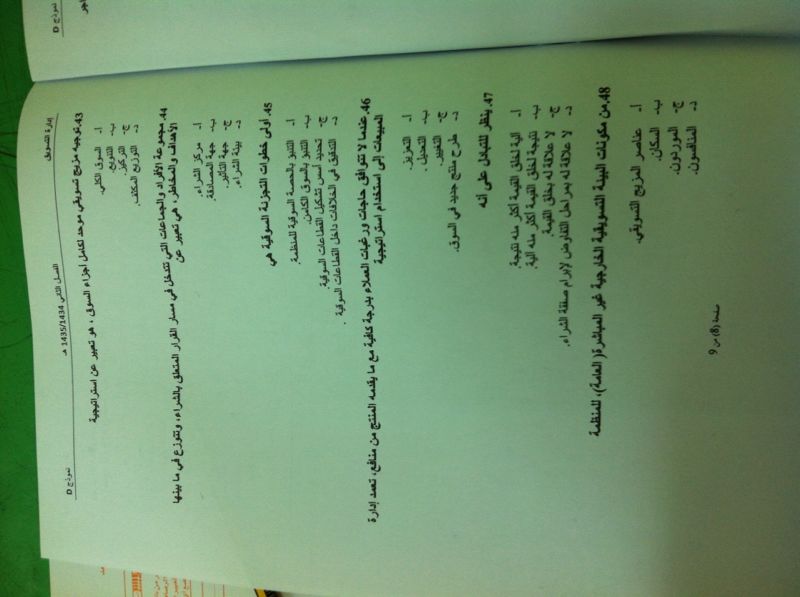 إدارة التسويق
الفصل الثاني 1435/1434 هـ
نموذج D
43. توجيه مزيج تسويقي موحد لكامل أجزاء السوق، هو تعبير عن استراتيجية
أ- السوق الكلي.
ب- التنويع.
ج- التركيز.
د- التوزيع المكثف.
44. مجموعة الأفراد والجماعات التي تتدخل في مسار القرار المتعلق بالشراء، وتتوزع في ما بينها
الأهداف و المخاطر، هي تعبير عن
أ- مركز الشراء.
ب- جهة المصادقة.
ج- جهة التأثير.
د- بيئة الشراء.
45. أولى خطوات التجزئة السوقية هي
أ- التنبؤ بالحصة السوقية للمنظمة.
ب- التنبؤ بالسوق الكامن.
ج- تحديد أسس تشكيل القطاعات السوقية.
د- التدقيق في الخلافات داخل القطاعات السوقية.
46. عندما لا تتوافق حاجات ورغبات العملاء بدرجة كافية مع ما يقدمه المنتج من منافع، تعمد إدارة
المبيعات إلى استخدام استراتيجية
أ- التعزيز.
ب- التحليل.
ج- التغيير.
د- طرح منتج جديد في السوق.
47. ينظر للتبادل على أنه
أ- آلية لخلق القيمة أكثر منه نتيجة.
ب- نتيجة لخلق القيمة أكثر منه آلية.
ج- لا علاقة له بخلق القيمة.
د- لا علاقة له بمراحل التفاوض لإبرام صفقة الشراء.
48. من مكونات البيئة التسويقية الخارجية غير المباشرة (العامة)، للمنظمة
أ- عناصر المزيج التسويقي.
ب- السكان.
ج- الموردون.
د- المنافسون.
صفحة (8) من 9
نموذج D